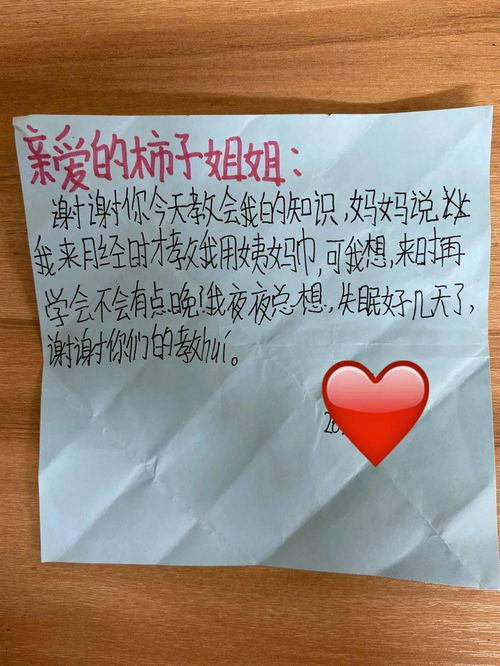 亲爱的柿子姐姐：
谢谢你今天教会我的知识，妈妈说
我来月经时才教我用姨妈巾，可我想，来时再
学会不会有点晚！我夜夜总想，失眠好几天了，
谢谢你们的教huí。